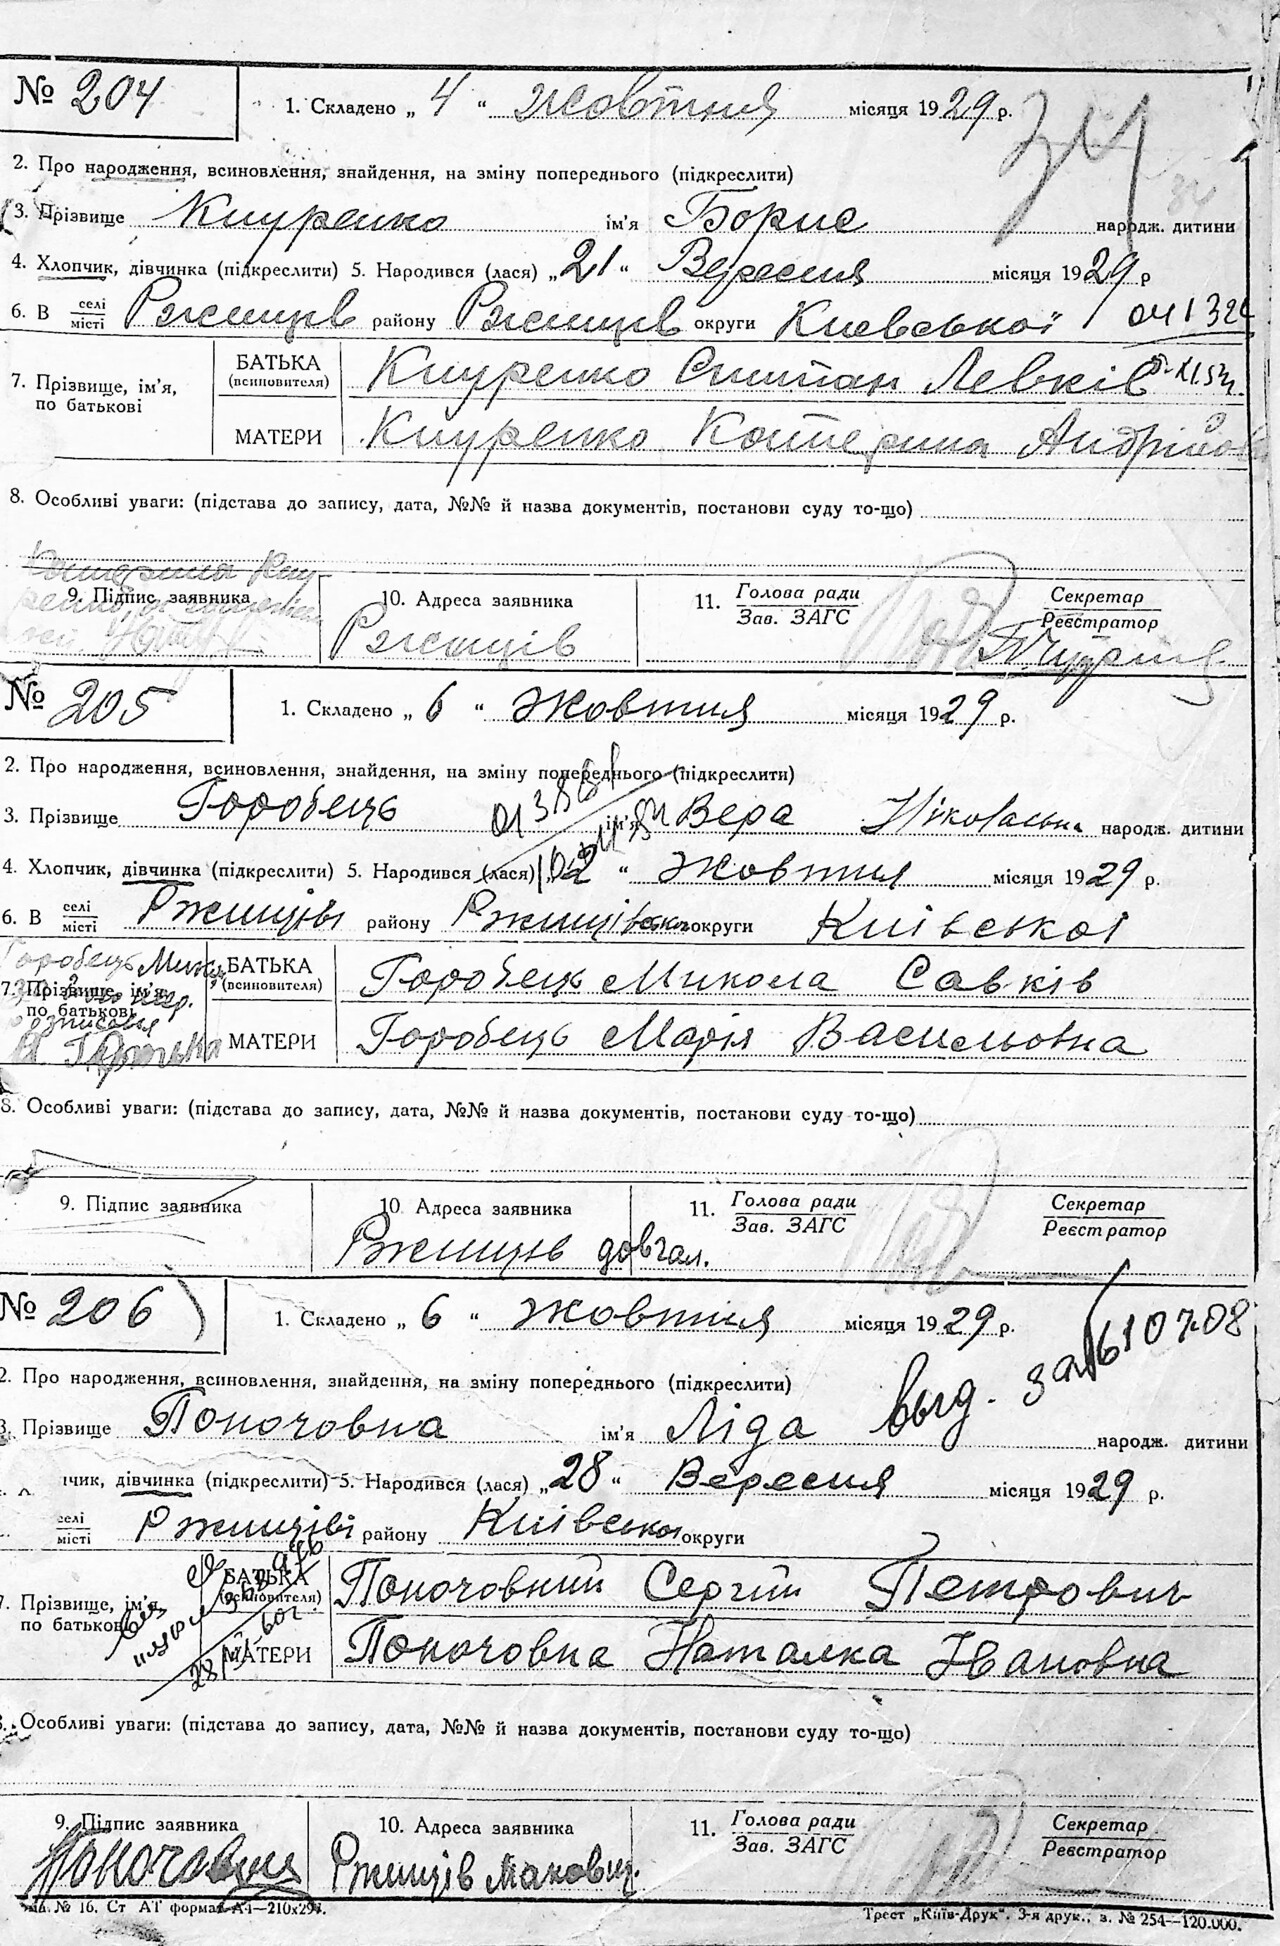 № 204
1. Складено „ 4 “ жовтня місяця 1929 р.
34
2. Про народження, всиновлення, знайдення, на зміну попереднього (підкреслити)
3. Прізвище Кнуренко ім'я Борис народж. дитини
4. Хлопчик, дівчинка (підкреслити) 5. Народився (лася) „ 21 “ Вересня місяця 1929 р
6. В селі місті Ржищев району Ржищев округи Киевської
7. Прізвище, ім'я, по батькові
БАТЬКА (всиновителя) Кнуренко Степан Левків
МАТЕРИ Кнуренко Катерина Андрійовна
8. Особливі уваги: (підстава до запису, дата, №№ й назва документів, постанови суду то-що)
9. Підпис заявника
10. Адреса заявника
Ржищів
11. Голова ради
Зав. ЗАГС
Секретар
Реєстратор
№ 205
1. Складено „ 6 “ жовтня місяця 1929 р.
2. Про народження, всиновлення, знайдення, на зміну попереднього (підкреслити)
3. Прізвище Горобець ім'я Вера Ніколаєвна народж. дитини
4. Хлопчик, дівчинка (підкреслити) 5. Народився (лася) „ 2 “ жовтня місяця 1929 р.
6. В селі місті Ржищіві району Ржищівської округи Київської
7. Прізвище, ім'я, по батькові
БАТЬКА (всиновителя) Горобець Микола Савків
МАТЕРИ Горобець Марія Васильовна
8. Особливі уваги: (підстава до запису, дата, №№ й назва документів, постанови суду то-що)
9. Підпис заявника
10. Адреса заявника
Ржищів довгал.
11. Голова ради
Зав. ЗАГС
Секретар
Реєстратор
№ 206
1. Складено „ 6 “ жовтня місяця 1929 р.
2. Про народження, всиновлення, знайдення, на зміну попереднього (підкреслити)
3. Прізвище Поночовна ім'я Ліда народж. дитини
чик, дівчинка (підкреслити) 5. Народився (лася) „ 28 “ Вересня місяця 1929 р.
селі місті Ржищіві району Київської округи
7. Прізвище, ім'я, по батькові
БАТЬКА (всиновителя) Поночовний Сергій Петрович
МАТЕРИ Поночовна Наталка Івановна
8. Особливі уваги: (підстава до запису, дата, №№ й назва документів, постанови суду то-що)
9. Підпис заявника
10. Адреса заявника
Ржищів
11. Голова ради
Зав. ЗАГС
Секретар
Реєстратор
№ 16. Ст АТ формат А4—210х297.
Трест „Київ-Друк“. 3-я друк., з. № 254—120.000.